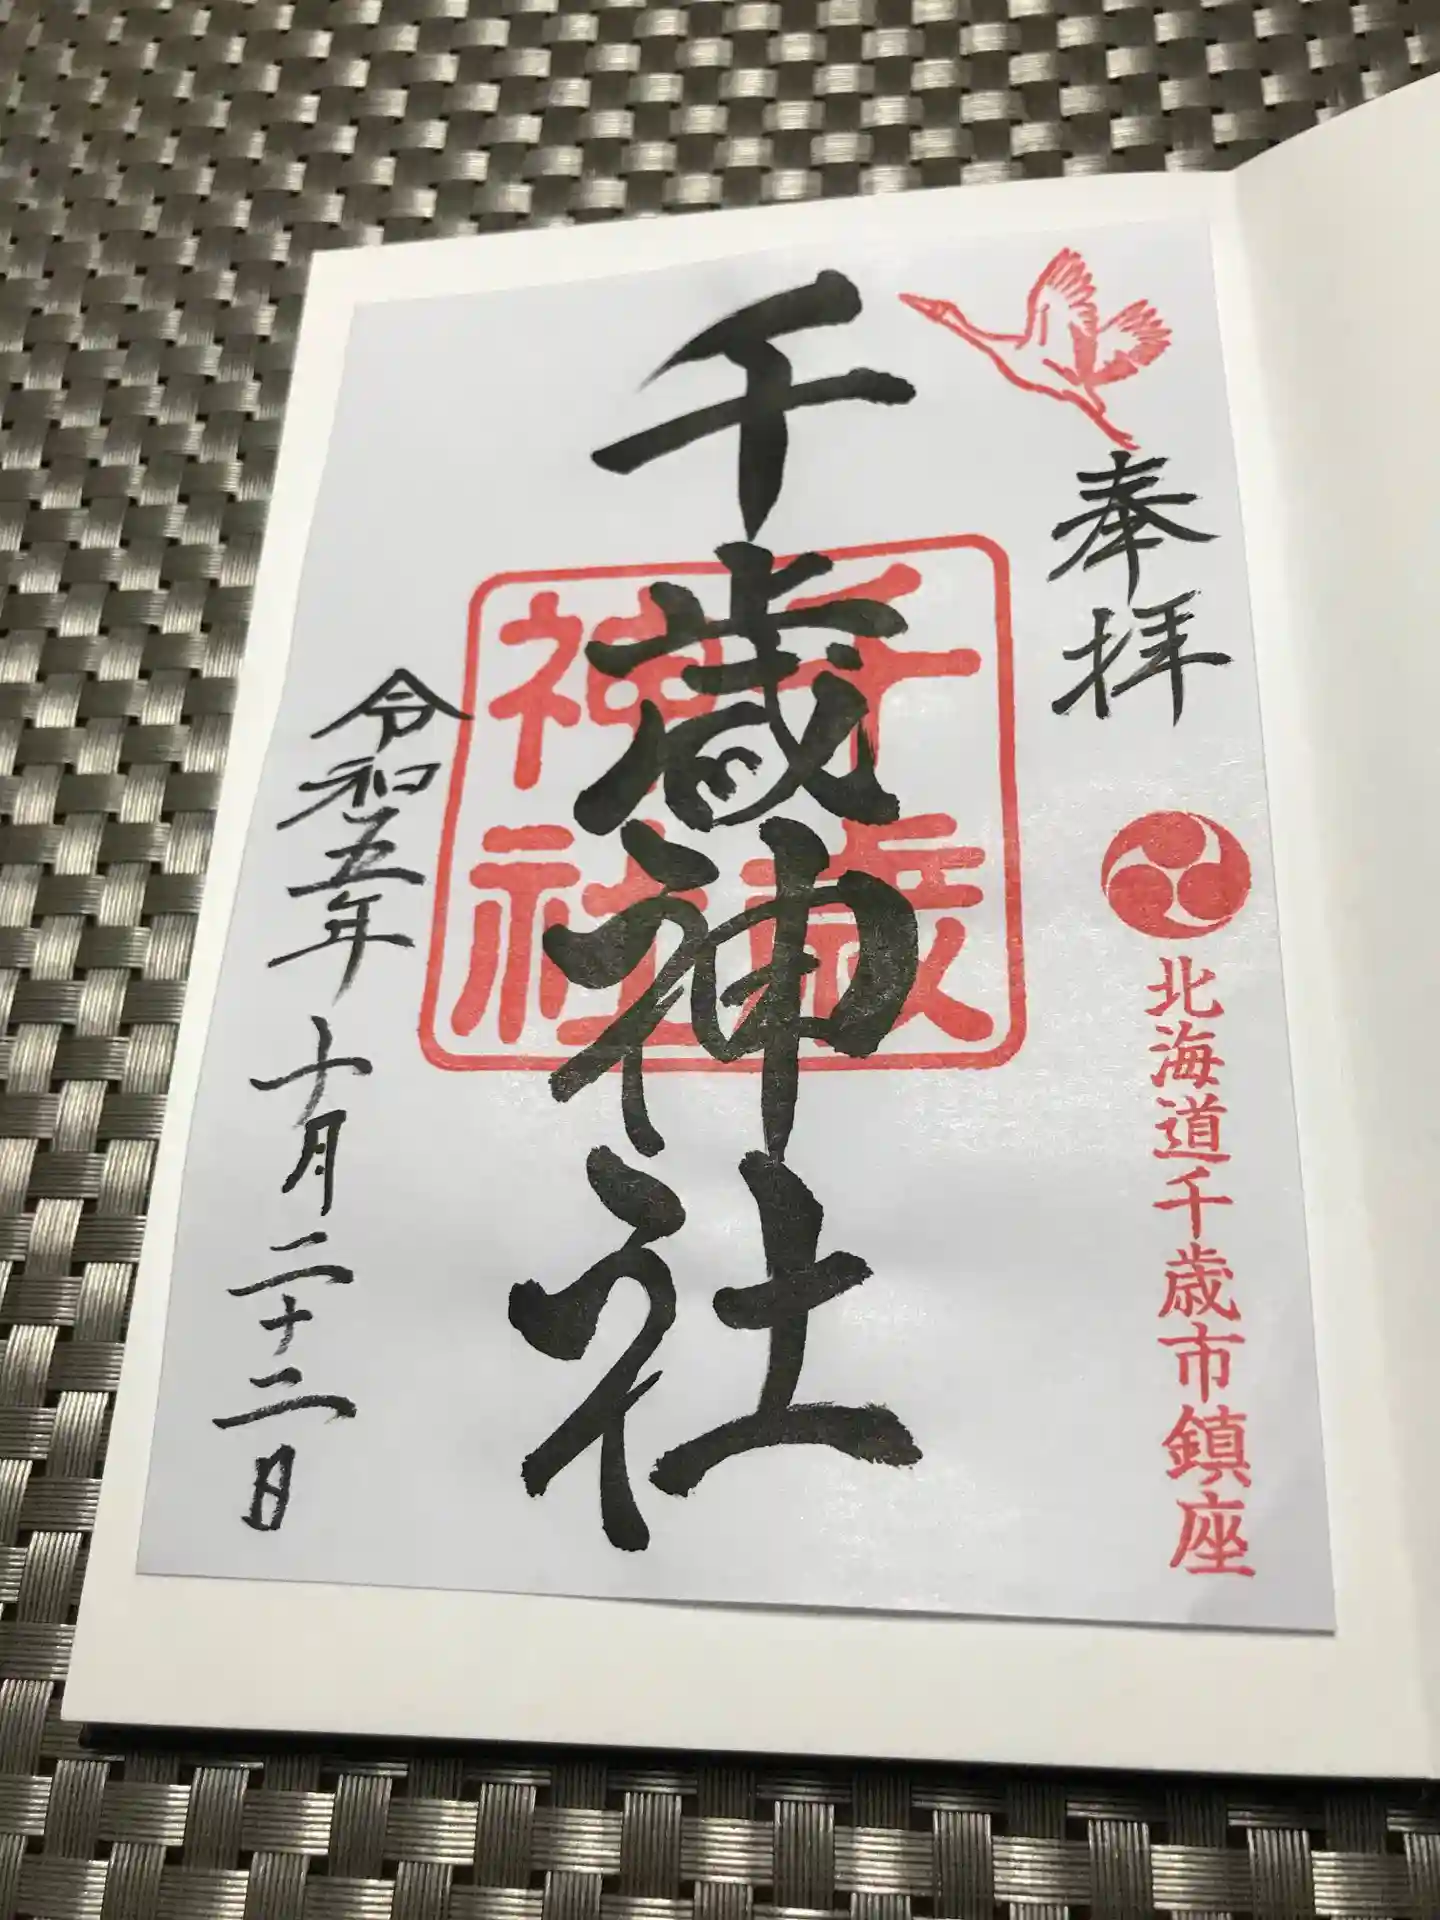 奉拝
北海道千歳市鎮座
千歳神社
千歳
神社
令和五年十月二十二日